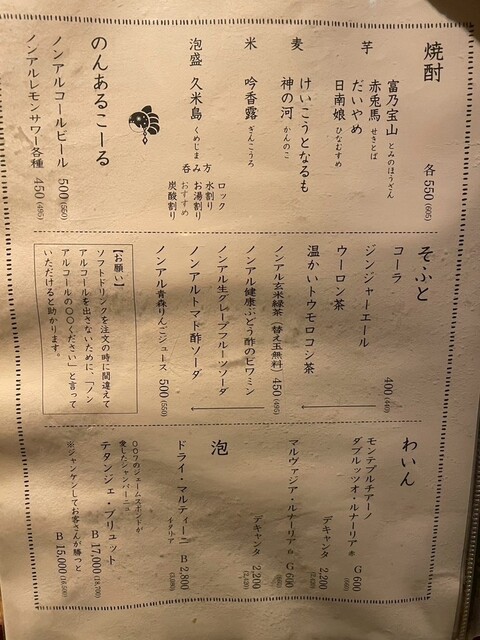 焼酎
各 550 (605)
芋
富乃宝山 とみのほうざん
赤兎馬 せきとば
だいやめ
日南娘 ひなむすめ
麦
けいこうとなるも
神の河 かんのこ
米
吟香露 ぎんこうろ
泡盛
久米島 くめじま
呑み方
ロック
水割り
お湯割り
おすすめ
炭酸割り
のんあるこーる
ノンアルコールビール 500 (550)
ノンアルレモンサワー各種 450 (495)
そふと
コーラ 400 (440)
ジンジャーエール
ウーロン茶
温かいトウモロコシ茶
ノンアル玄米緑茶(替え玉無料) 450 (495)
ノンアル健康ぶどう酢のビワミン
ノンアル生グレープフルーツソーダ
ノンアルトマト酢ソーダ
ノンアル青森りんごジュース 500 (550)
【お願い】
ソフトドリンクを注文の時に間違えて
アルコールを出さないために、「ノン
アルコールの〇〇ください」と言って
いただけると助かります。
わいん
モンテプルチアーノ
ダブルッツオ・ルナーリア G 600 (660)
デキャンタ 2,200 (2,420)
マルヴァジア・ルナーリア G 600 (660)
デキャンタ 2,200 (2,420)
泡
ドライ・マルティーニ B 2,800 (3,080)
イタリア
007のジェームズボンドが
愛したシャンパーニュ
テタンジェ・ブリュット B 17,000 (18,700)
※ジャンケンしてお客さんが勝つと
B 15,000 (16,500)